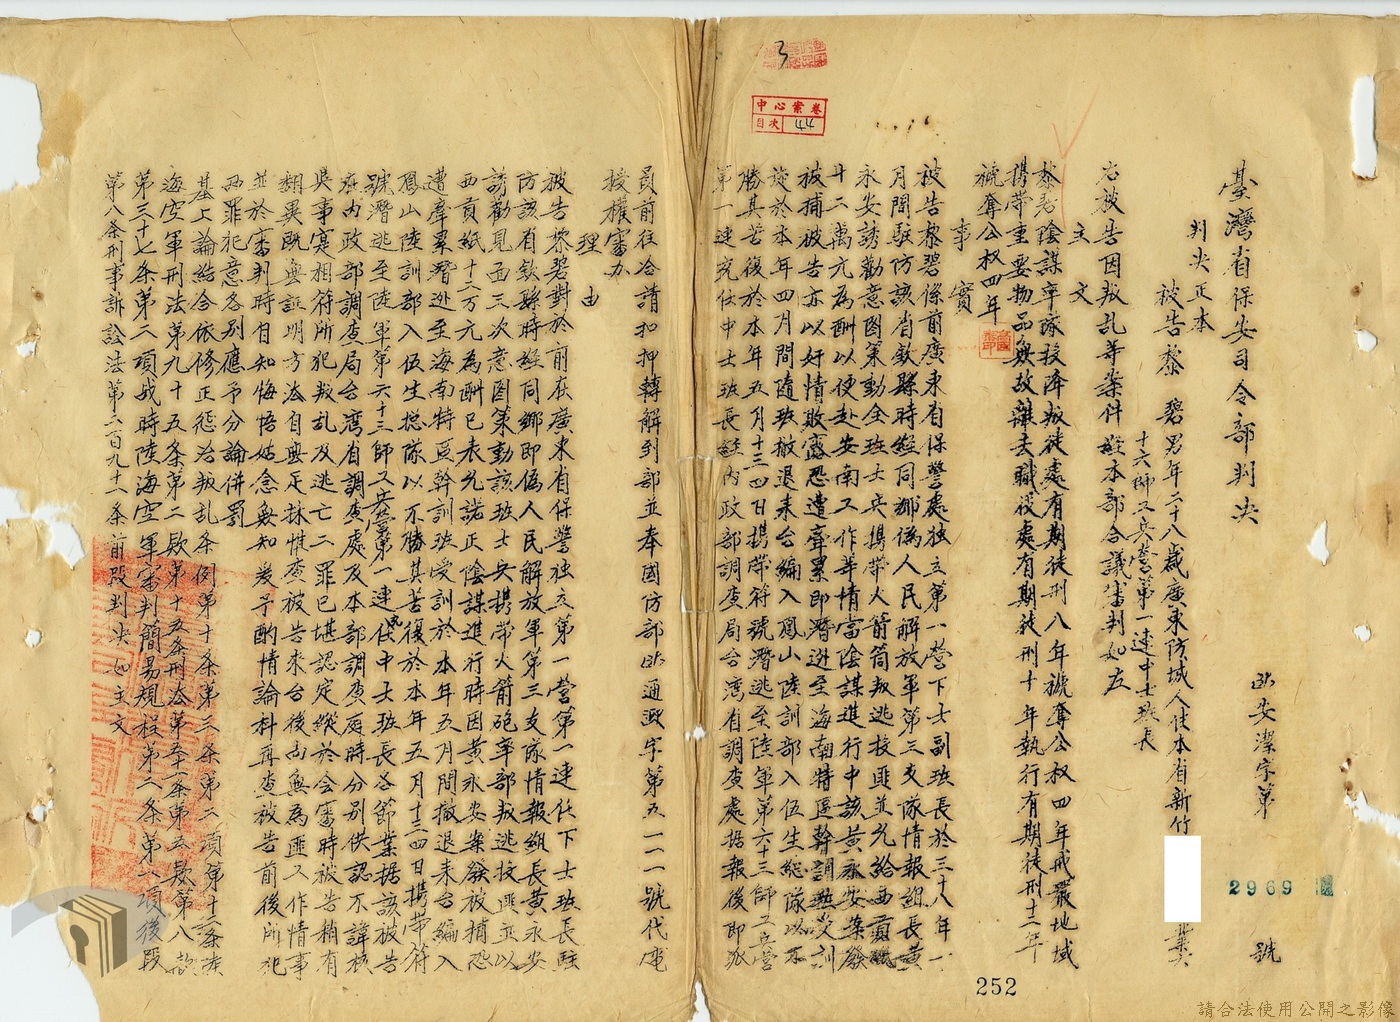 中心案卷
目次 44
3
臺灣省保安司令部判決
(39)安潔字第2969號
判決正本
被告黎 碧男年二十八歲廣東防城人住本省新竹 業
十六師工兵營第一連中士班長
右被告因叛乱等案件經本部合議審判如左
主文
黎碧陰謀率隊投降叛徒處有期徒刑八年褫奪公权四年戒嚴地域
携帶重要物品無故離去職役處有期徒刑十年執行有期徒刑十二年
褫奪公权四年
事實
被告黎碧係前廣東省保警处独立第一營下士副班長於三十八年一
月間駐防該省欽縣時經同鄉偽人民解放軍第三支隊情報組長黃
永安誘勸意圖策動全班士兵携帶火箭筒叛逃投匪並允給西貢紙
十二萬元為酬以便赴安南工作等情當陰謀進行中該黃永安案發
被捕被告亦以奸情敗露恐遭牽累即潛逃至海南特區幹訓班受訓
旋於本年四月間隨班撤退来台編入鳳山陸訓部入伍生總隊以不
勝其苦復於本年五月十三四日携帶符號潛逃至陸軍第六十三師工兵營
第一連充任中士班長經內政部調查局台湾省調查處据報後即派
員前往洽請扣押轉解到部並奉國防部 通 字第五一一一號代电
授權審办
理由
被告黎碧對於前在廣東省保警独立第一營第一連任下士班長駐
防該省欽縣時經同鄉即偽人民解放軍第三支隊情報組長黃永安
誘勸見面三次意图策動該班士兵携帶火箭砲率部叛逃投匪並以
西貢紙十二万元為酬已表允諾正陰謀進行時因黃永安案發被捕恐
遭牽累潛逃至海南特區幹訓班受訓於本年五月間撤退来台編入
鳳山陸訓部入伍生總隊以不勝其苦復於本年五月十三四日携帶符
號潛逃至陸軍第六十三師工兵營第一連充任中士班長各節業据該被告
在內政部調查局台湾省調查處及本部調查庭時分別供認不諱核
與事實相符所犯叛乱及逃亡二罪已堪認定縱於会審時被告稍有
翻異既無証明方法自無足採惟查被告来台後尚無為匪工作情事
並於審判時自知悔悟姑念無知爰予酌情論科再查被告前後所犯
两罪犯意各別應予分論併罰
基上論結合依修正懲治叛乱条例第十条第三条第二項第十二条陸
海空軍刑法第九十五条第二款第十五条刑法第五十一条第五款第八款
第三十七条第二項戰時陸海空軍審判簡易規程第二条第一項後段
第八条刑事訴訟法第二百九十一条前段判决如主文
252
請合法使用公開之影像